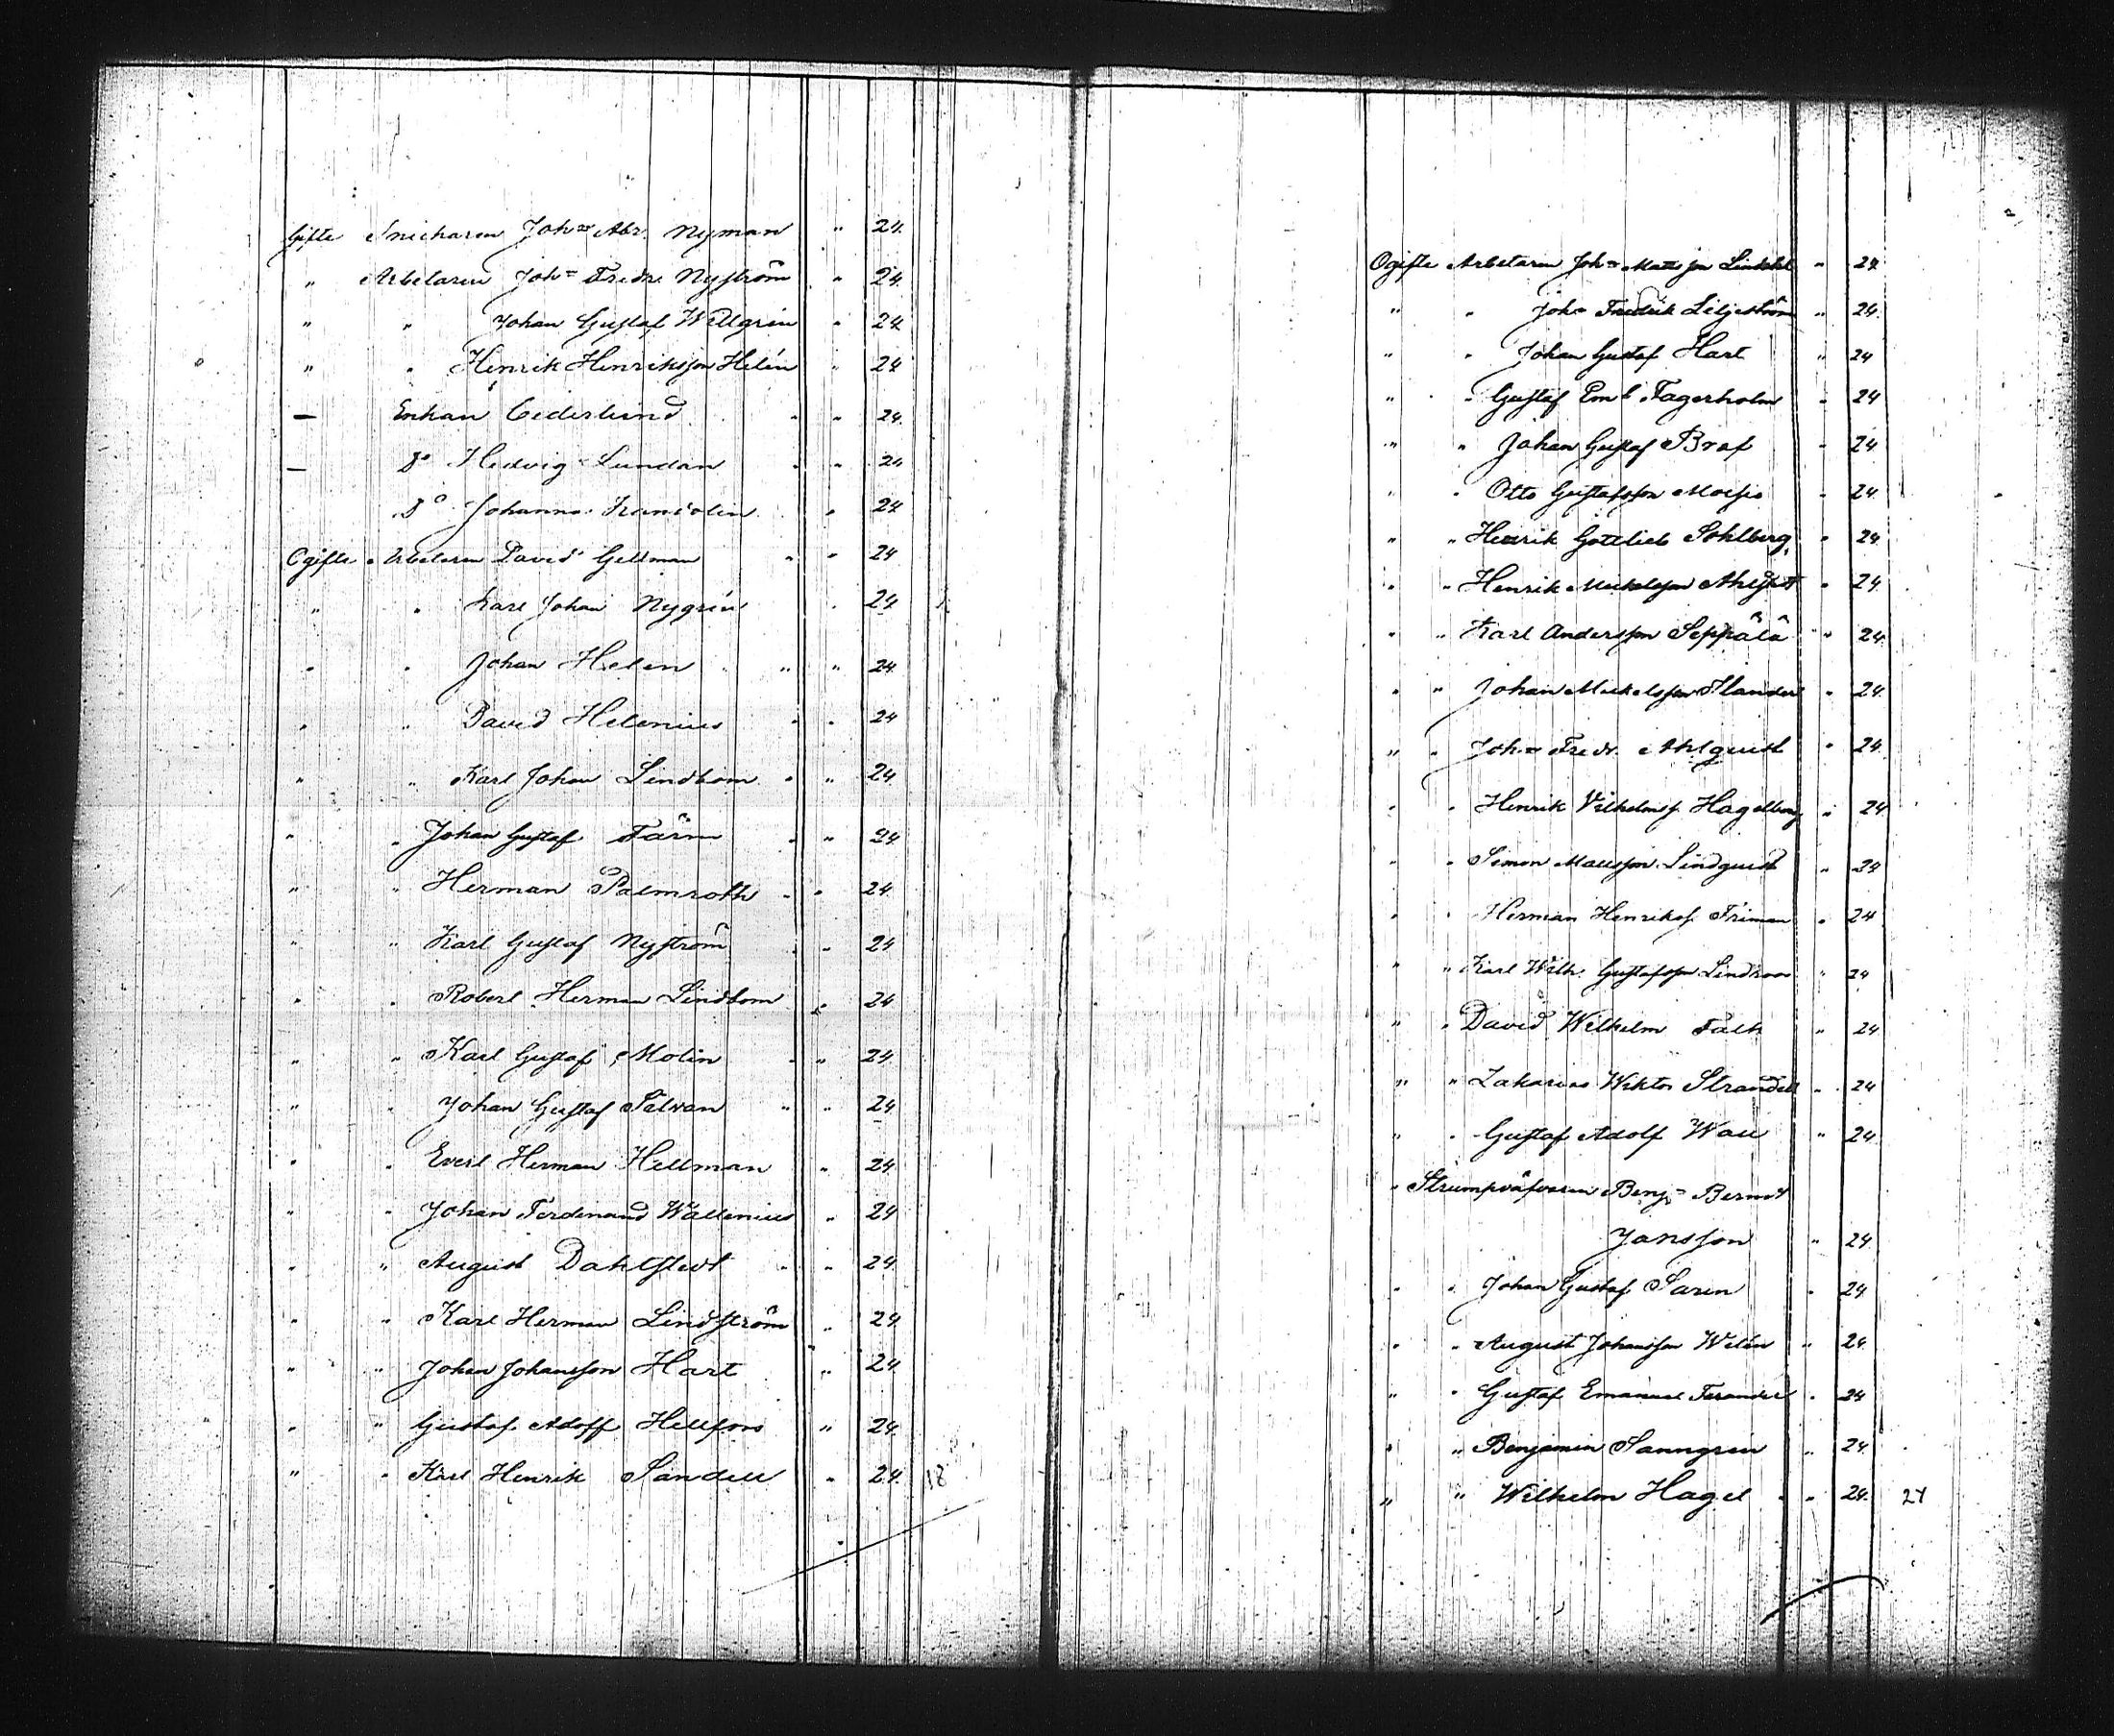 Gifte Snickaren John Abr. Nyman " 24.
" Arbetaren Joh= Fredr. Nyström " 24.
" " Johan Gustaf Wellgrén " 24
" " Henrik Henriksson Helén " 24
— Enkan Cederlund " " 24.
— Do Hedvig Lundan " " 24
Do Johanna " 24
Ogifte Arbetaren David Gellman " " 24
" " Karl Johan Nygrén " 24
" " Johan Helen " " 24
" " David Helenius " " 24
" " Karl Johan Lindbom " " 24.
" " Johan Gustaf Färm " " 24.
" " Herman Palmroth " " 24.
" " Karl Gustaf Nyström " " 24
" " Robert Herman Lindbom " 24
" " Karl Gustaf Molin " " 24.
" " Johan Gustaf Salvan " " 24.
" " Evert Herman Hellman " 24.
" " Johan Ferdinand Wallenius " 24
" " August Dahlstedt " " 24.
" " Karl Herman Lindström " 24
" " Johan Johansson Hart " 24.
" " Gustaf Adolf Hellfors " 24.
" " Karl Henrik Sandell " 24. 18
Ogifte Arbetaren Joh= Mattsson " 24.
" " Joh= Fredrik Liljeström " 24.
" " Johan Gustaf Hart " 24
" " Gustaf Em l Fagerholm " 24
" " Johan Gustaf Braf " 24.
" " Otto Gustafsson Moisio " 24.
" " Henrik Gottlieb Sohlberg " 24.
" " Henrik Mickelsson Ahlqvist " 24.
" " Karl Andersson Seppälä " " 24.
" " Johan Mickelsson Flander " 24.
" " Joh= Fredr. Ahlquist " 24.
" " Henrik Vilhelmss. Hagelberg " 24
" " Simon Mattsson Lindquist " 24
" " Herman Henrikss. Friman " 24
" " Karl Wilh. Gustafsson Lindroos " 24
" " David Wilhelm Falk " 24
" " Zakarias Wiktor Strandell " 24
" " Gustaf Adolf Wall " 24.
" Strumpväfvaren Benj= Berndt
Jansson " 24.
" " Johan Gustaf Saren " 24.
" " August Johansson Welén " 24.
" " Gustaf Emanuel Ferandel " 24
" " Benjamin Sanngren " 24.
" " Wilhelm Hagel " " 24. 24